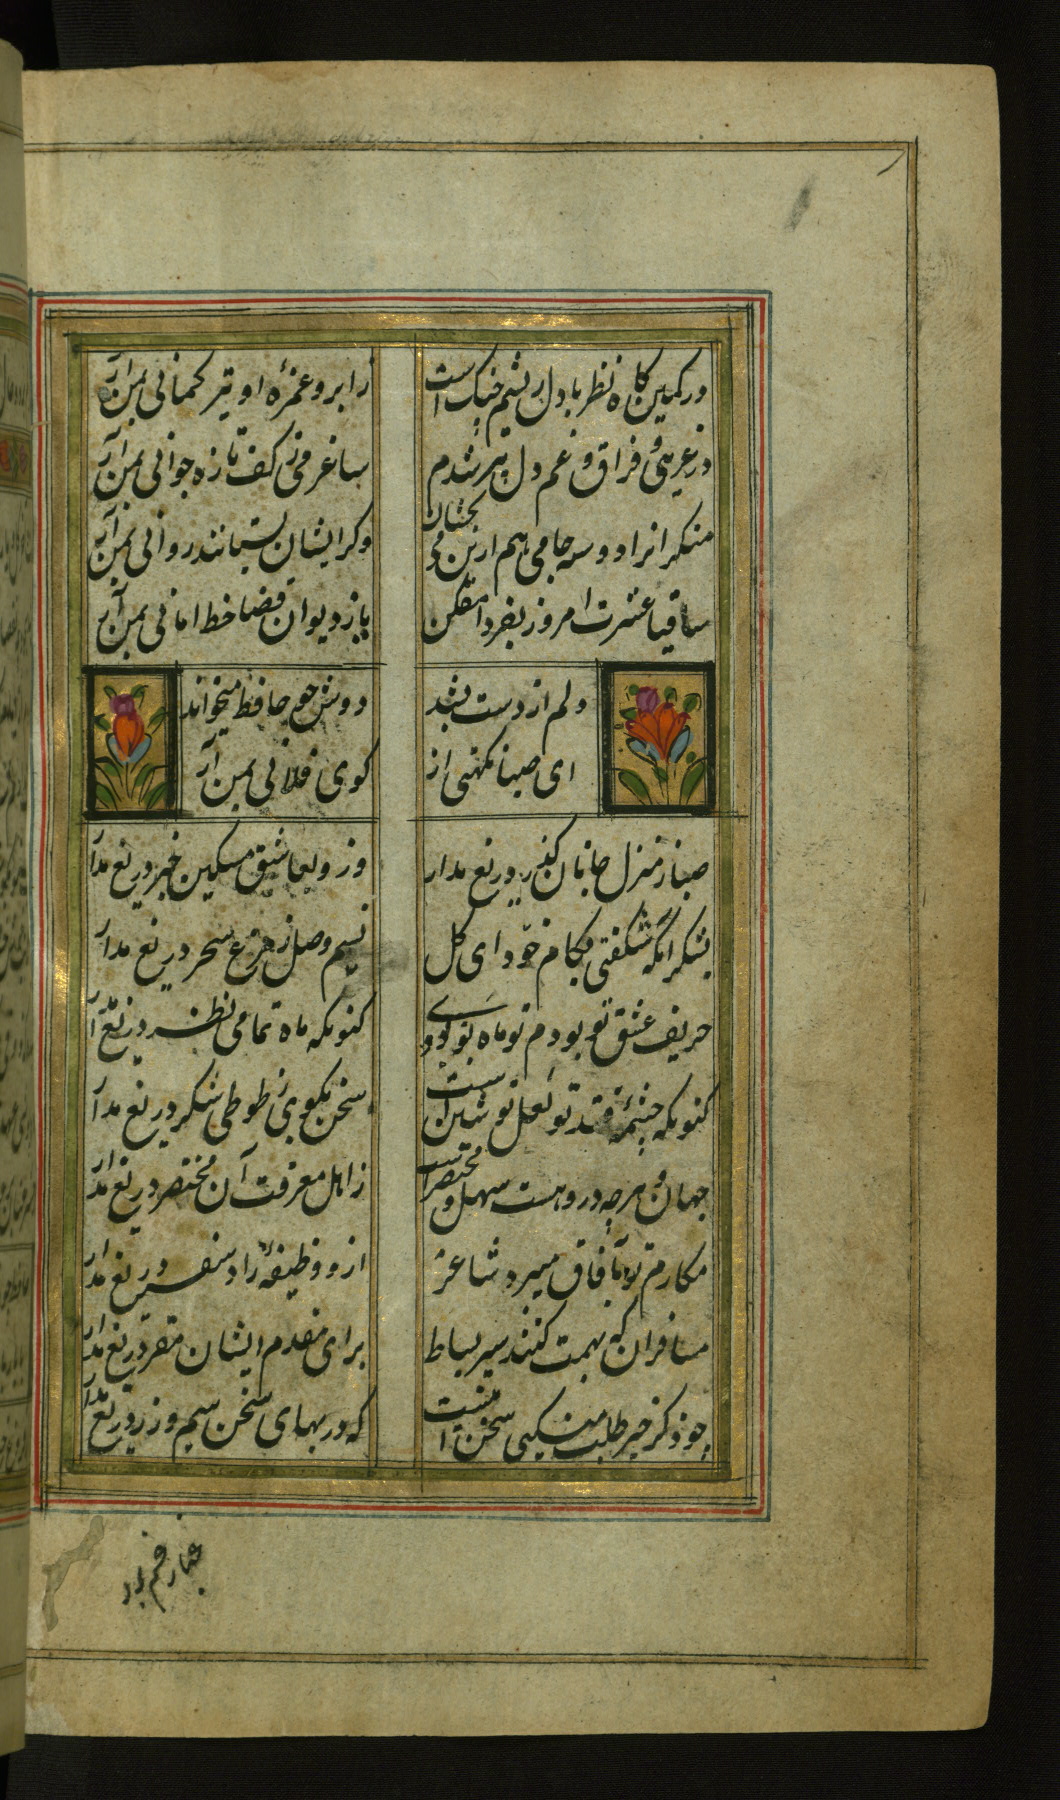 در کمین کاه نظر با دل ریشم جنک است
ز ابرو و غمزه او تیر کمانی بمن آر
در غریبی و فراق و غم دل پیر شدم
ساغر می ز کف تازه جوانی بمن آر
منکرانرا دو سه جامی بهم از این می بچشان
وکر ایشان نستانند روانی بمن آر
ساقیا عشرت امروز بفردا مفکن
یا ز دیوان قضا خط امانی بمن آر
دلم از دست بشد
دوش چو حافظ میخواند
ای صبا نکهتی از
کوی فلانی بمن آر
صبا ز منزل جانان کذر دریغ مدار
وز و بعاشق مسکین خبر دریغ مدار
بشکر انکه شکفتی بکام خود ای کل
نسیم وصل ز مرغ سحر دریغ مدار
حریف عشق تو بودم تو ماه نو بودی
کنونکه ماه تمامی نظر دریغ مدار
کنونکه چشمه قند تو لعل نوشین است
سخن بکوی ز طوطی شکر دریغ مدار
جهان و هر چه درو هست سهل و مختصر است
ز اهل معرفت آن مختصر دریغ مدار
مکارم تو بآفاق میبرد شاعر
ازو وظیفه زاد سفر دریغ مدار
مسافران که بهمت کنند سیر بساط
برای مقدم ایشان مقر دریغ مدار
چو ذکر خیر طلب میکنی سخن اینست
که در بهای سخن سیم و زر دریغ مدار
غبار غم برو